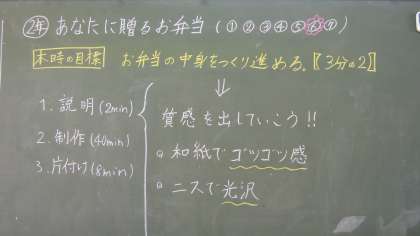 2年 あなたに贈るお弁当 (①②③④⑤⑥⑦)
本時の目標 お弁当の中身をつくり進める。〖3分の2〗
⇓
1. 説明(2min)
2. 制作(40min)
3. 片付け(8min)
質感を出していこう!!
和紙でゴツゴツ感
ニスで光沢